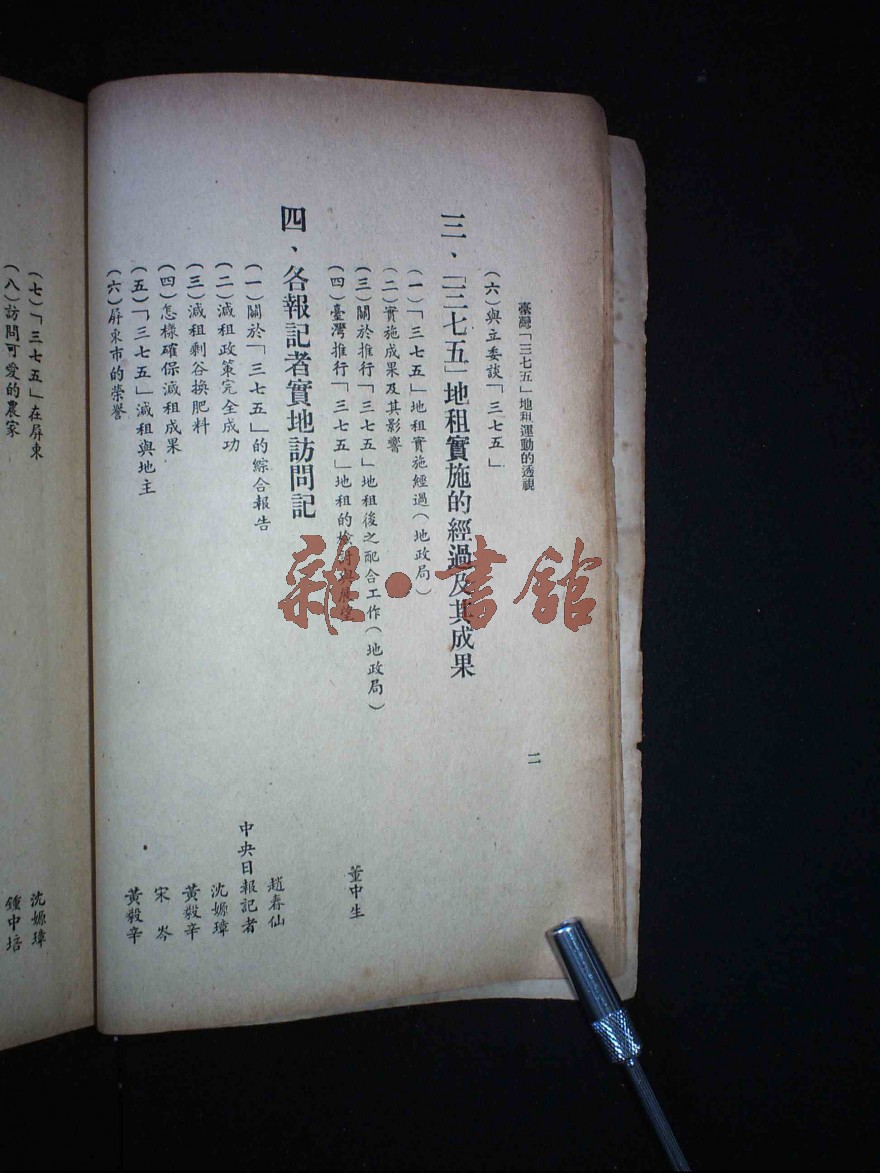 臺灣「三七五」地租運動的透視
二
(六)與立委談「三七五」
三、「三七五」地租實施的經過及其成果
(一)「三七五」地租實施經過(地政局)
(二)實施成果及其影響
(三)關於推行「三七五」地租後之配合工作(地政局)
(四)臺灣推行「三七五」地租的檢討與展望 董中生
四、各報記者實地訪問記
(一)關於「三七五」的綜合報告 趙春仙
(二)減租政策完全成功 中央日報記者
(三)減租剩谷換肥料 沈嫄璋
(四)怎樣確保減租成果 黃毅辛
(五)「三七五」減租與地主 宋岑
(六)屏東市的榮譽 黃毅辛
(七)「三七五」在屏東 沈嫄璋
(八)訪問可愛的農家 鍾中培
雜·書館